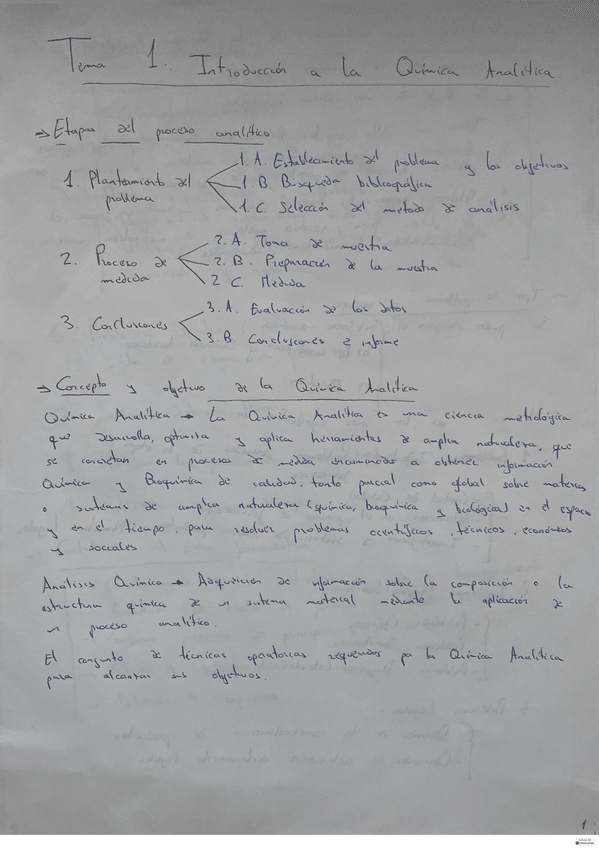 Tema 1. Introducción a la Química Analítica
→ Etapas del proceso analítico
1. Planteamiento del problema
1. A. Establecimiento del problema y los objetivos
1. B. Búsqueda bibliográfica
1. C. Selección del método de análisis
2. Proceso de medida
2. A Toma de muestra
2. B. Preparación de la muestra
2 C. Medida
3. Conclusiones
3. A. Evaluación de los datos
3. B. Conclusiones e informe
→ Concepto y objetivo de la Química Analítica
Química Analítica → La Química Analítica es una ciencia metrológica
que desarrolla, optimiza y aplica herramientas de amplia naturaleza, que
se concretan en procesos de medida encaminados a obtener información
Química y Bioquímica de calidad, tanto parcial como global sobre materias
o sistemas de amplia naturaleza (química, bioquímica y biológica) en el espacio
y en el tiempo, para resolver problemas científicos, técnicos, económicos
y sociales
Análisis Químico → Adquisición de información sobre la composición o la
estructura química de un sistema material mediante la aplicación de
un proceso analítico.
El conjunto de técnicas operatorias requeridos pa la Química Analítica
para alcanzar sus objetivos.
1